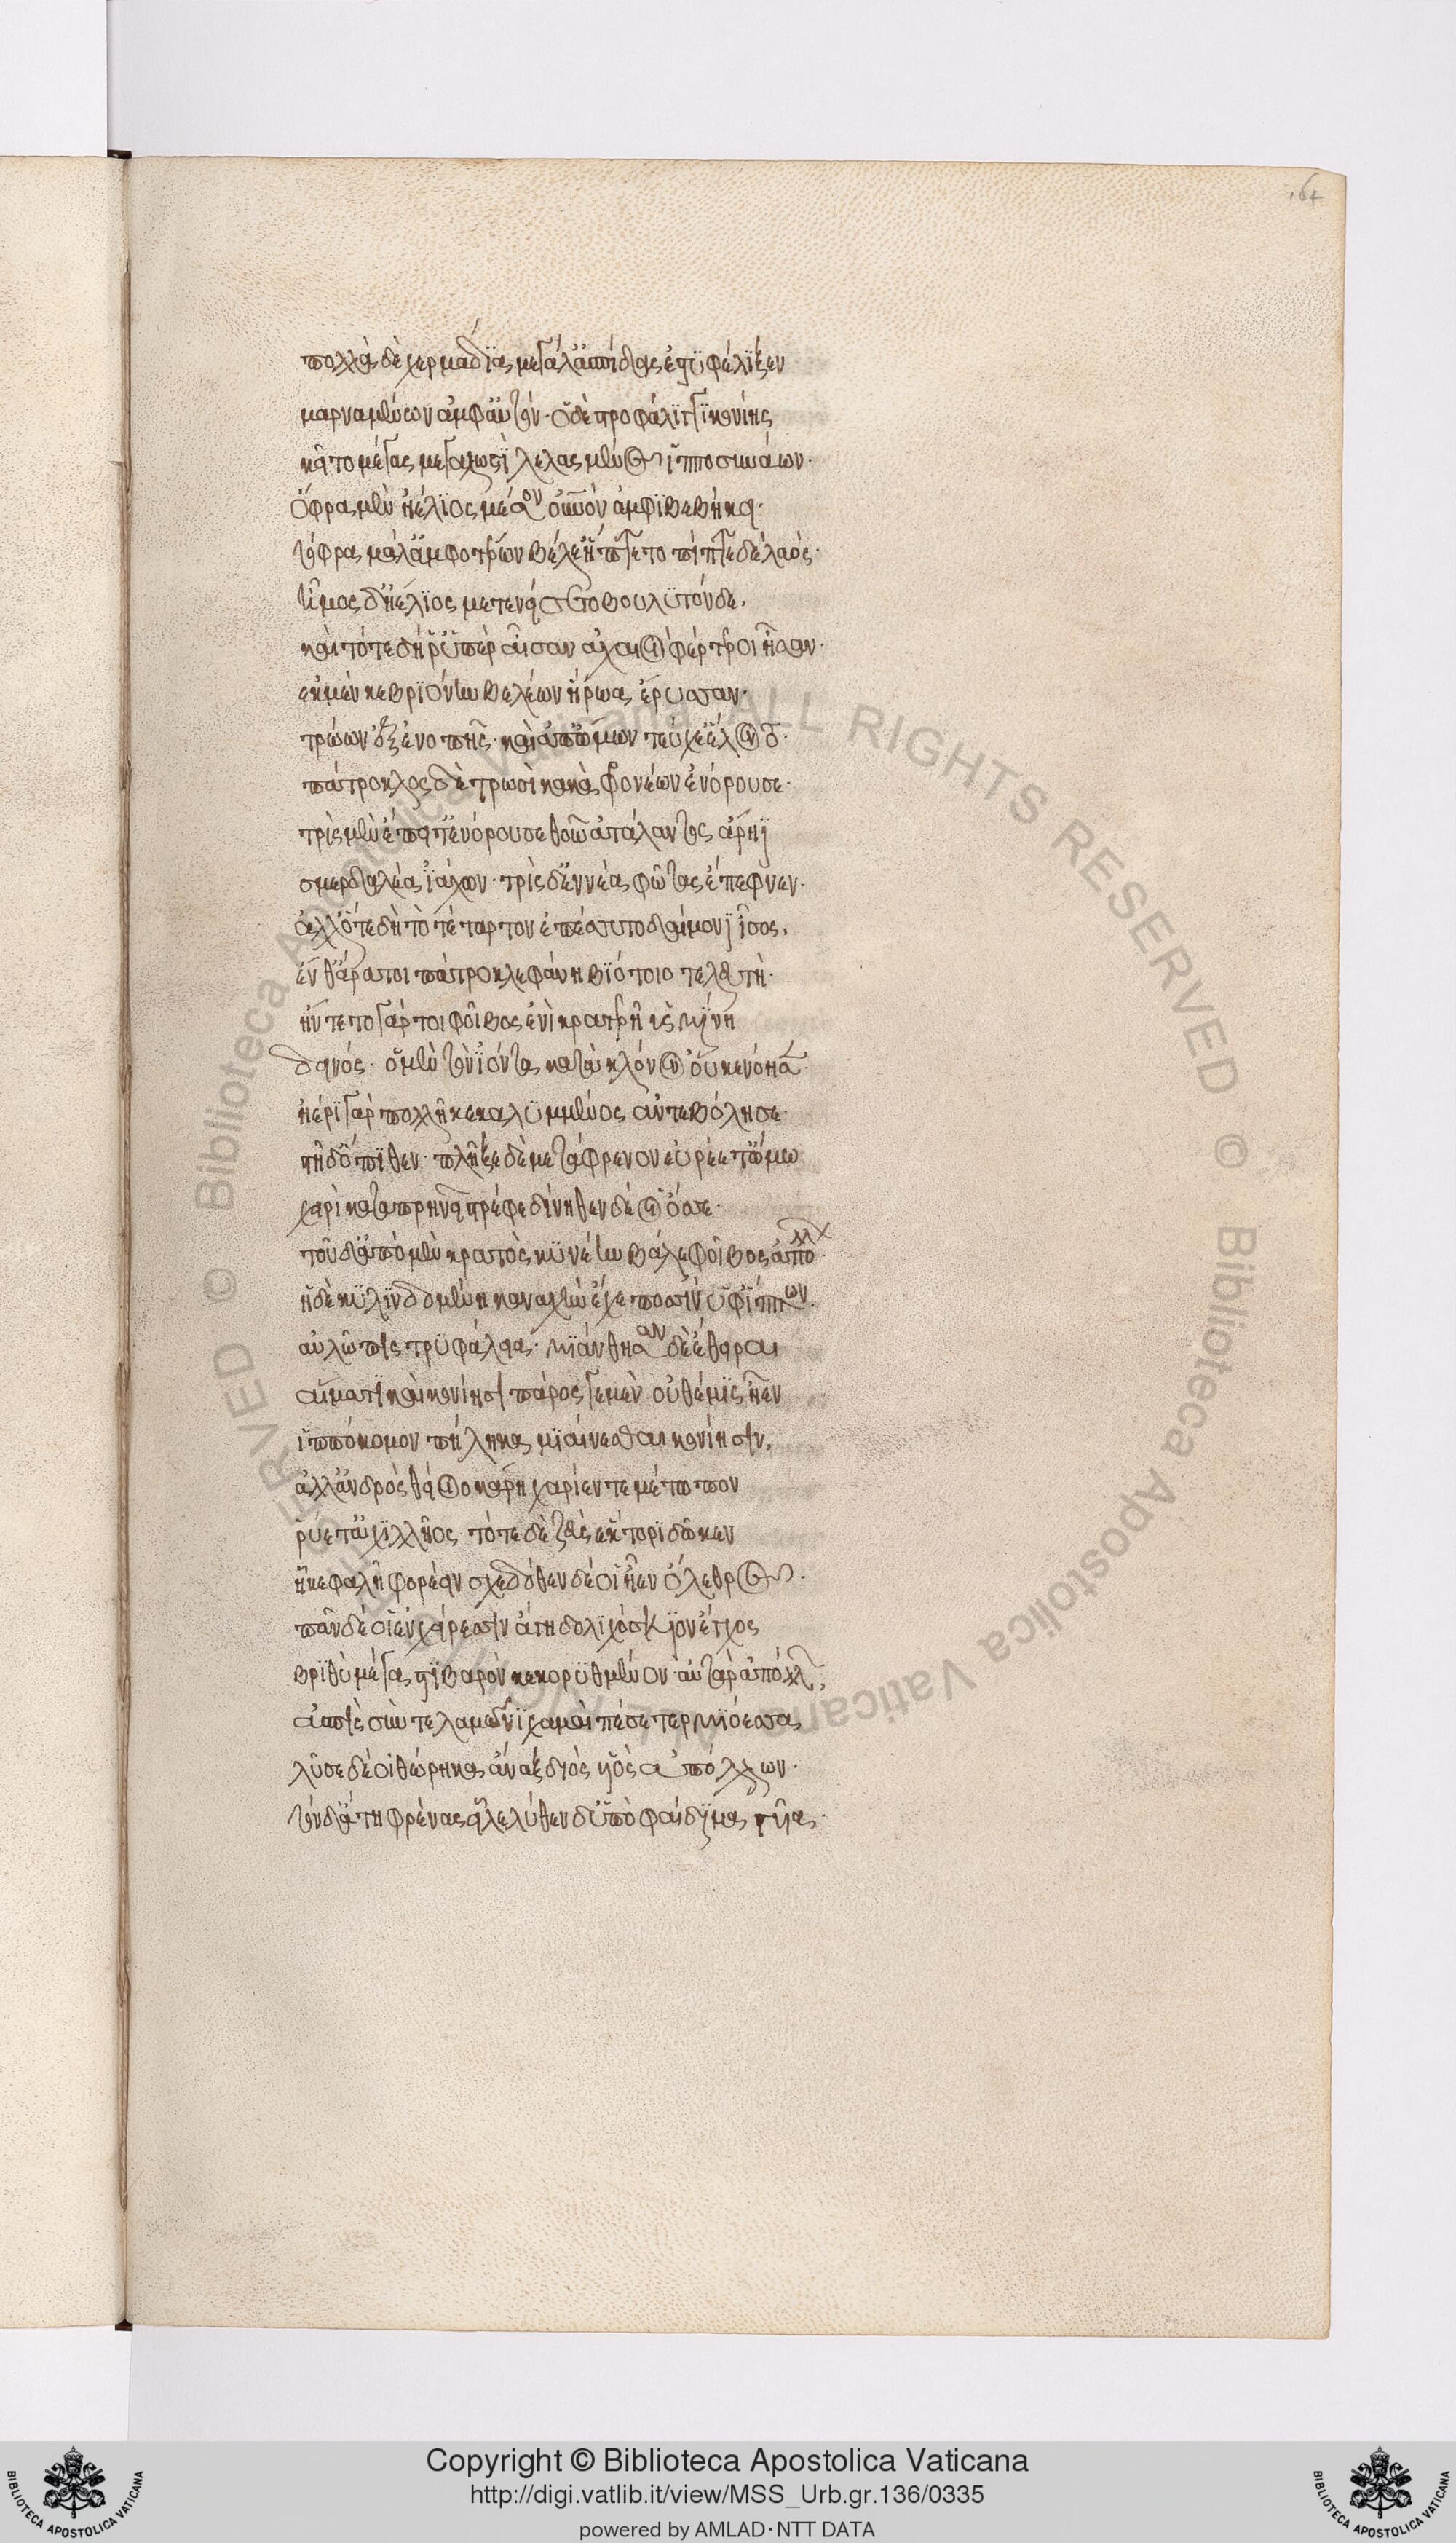 164
πολλὰ δὲ χερμάδια μεγάλ' ἀσπίδας ἐστυφέλιξεν
μαρναμένων ἀμφ' αὐτόν· ὁ δὲ στροφάλιγγι κονίης
κεῖτο μέγας μεγαλωστὶ λελασμένος ἱπποσυνάων·
ὄφρα μὲν ἠέλιος μέσον οὐρανὸν ἀμφιβεβήκει·
τόφρα μάλ' ἀμφοτέρων βέλε' ἥπτετο πίπτε δὲ λαός·
ἦμος δ' ἠέλιος μετενείσσετο βουλυτόνδε.
καὶ τότε δή ῥ' ὑπὲρ αἶσαν ἀχαιοὶ φέρτεροι ἦσαν·
ἐκ μὲν κεβριόνην βελέων ἥρωα ἔρυσσαν·
τρώων ἐξ ἐνοπῆς· καὶ ἀπ' ὤμων τεύχε' ἕλοντο·
πάτροκλος δὲ τρωσὶ κακὰ φρονέων ἐνόρουσε·
τρὶς μὲν ἔπειτ' ἐνόρουσε θοῷ ἀτάλαντος ἄρηϊ
σμερδαλέα ἰάχων· τρὶς δ' ἐννέα φῶτας ἔπεφνεν·
ἀλλ' ὅτε δὴ τὸ τέταρτον ἐπέσσυτο δαίμονι ἶσος.
ἔνθ' ἄρα τοι πάτροκλε φάνη βιότοιο τελευτή·
ἤντετο γάρ τοι φοῖβος ἐνὶ κρατερῇ ὑσμίνῃ
δεινός· ὁ μὲν τὸν ἰόντα κατὰ κλόνον οὐκ ἐνόησεν·
ἠέρι γὰρ πολλῇ κεκαλυμμένος ἀντεβόλησε·
στῆ δ' ὄπιθεν· πλῆξε δὲ μετάφρενον εὐρέε τ' ὤμω
χειρὶ καταπρηνεῖ στρέφε δίνηθεν δέ οἱ ὄσσε·
τοῦ δ' ἀπὸ μὲν κρατὸς κυνέην βάλε φοῖβος ἀπόλλων·
ἡ δὲ κυλινδομένη καναχὴν ἔχε ποσσὶν ὑφ' ἵππων·
αὐλῶπις τρυφάλεια· μιάνθησαν δὲ ἔθειραι
αἵματι καὶ κονίῃσι πάρος γε μὲν οὐ θέμις ἦεν
ἱππόκομον πήληκα μιαίνεσθαι κονίῃσιν.
ἀλλ' ἀνδρὸς θείοιο κάρη χαρίεν τε μέτωπον
ῥύετ' ἀχιλλῆος· τότε δὲ ζεὺς ἕκτορι δῶκεν
ᾗ κεφαλῇ φορέειν σχεδόθεν δέ οἱ ἦεν ὄλεθρος·
πᾶν δέ οἱ ἐν χείρεσσιν ἄγη δολιχόσκιον ἔγχος
βριθὺ μέγα στιβαρὸν κεκορυθμένον· αὐτὰρ ἀπ' ὤμων
ἀσπὶς σὺν τελαμῶνι χαμαὶ πέσε τερμιόεσσα
λῦσε δέ οἱ θώρηκα ἄναξ διὸς υἱὸς ἀπόλλων·
τὸν δ' ἄτη φρένας εἷλε λύθεν δ' ὑπὸ φαίδιμα γυῖα·
Copyright © Biblioteca Apostolica Vaticana
http://digi.vatlib.it/view/MSS_Urb.gr.136/0335
powered by AMLAD·NTT DATA